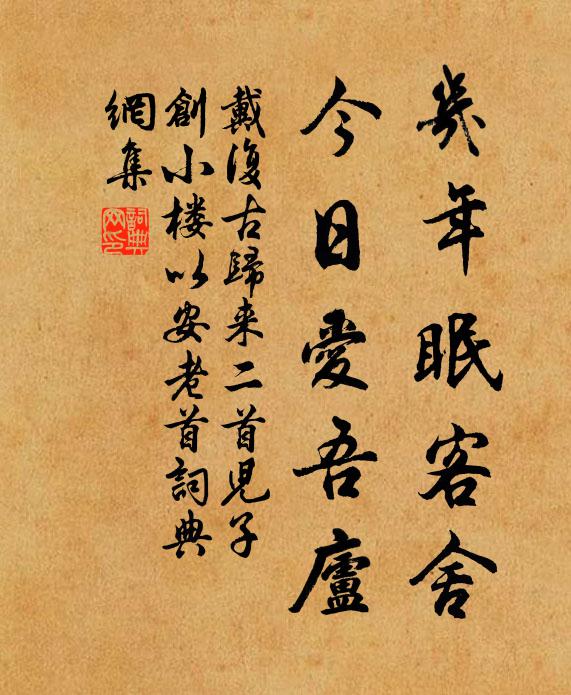 幾年眠客舍
今日愛吾廬
戴復古歸来二首兒子
創小楼以安老首詞典
網集
詞典網印